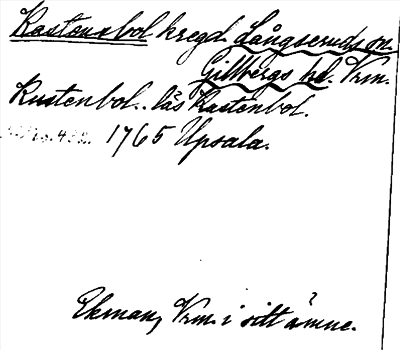 Rastensbol kregd Långseruds sn.
Gillbergs hd. Vrm.
Rustenbol. läs Rastenbol.
1765 Upsala.
Ekman, Vrm. i sitt ämne.